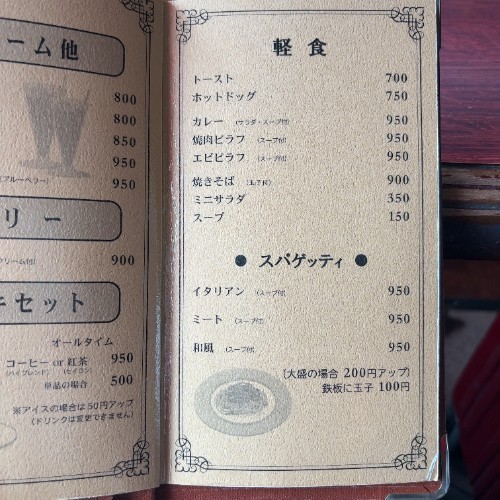 ーム他
800
800
850
950
(ブルーベリー) 950
リー
クリーム付) 900
キセット
オールタイム
コーヒー or 紅茶 950
(ハイブレンド) (セイロン)
単品の場合 500
※アイスの場合は50円アップ
(ドリンクは変更できません)
軽食
トースト 700
ホットドッグ 750
カレー (サラダ・スープ付) 950
焼肉ピラフ (スープ付) 950
エビピラフ (スープ付) 950
焼きそば (玉子付) 900
ミニサラダ 350
スープ 150
● スパゲッティ ●
イタリアン (スープ付) 950
ミート (スープ付) 950
和風 (スープ付) 950
(大盛の場合 200円アップ)
鉄板に玉子 100円